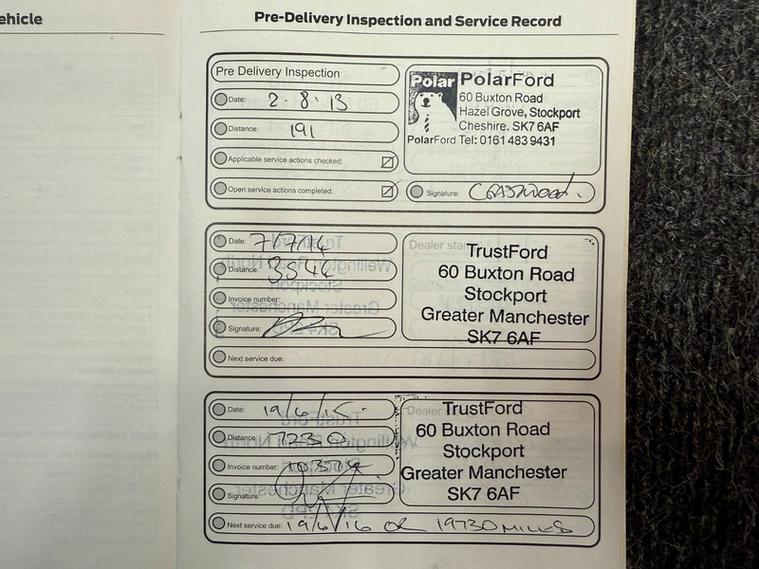 ehicle
Pre-Delivery Inspection and Service Record
Pre Delivery Inspection
Date: 2.8.13
Distance: 191
Applicable service actions checked:
Open service actions completed:
Polar PolarFord
60 Buxton Road
Hazel Grove, Stockport
Cheshire. SK7 6AF
PolarFord Tel: 0161 483 9431
Signature:
Date: 7/7/14
Distance: 3544
Invoice number:
Signature:
Next service due:
TrustFord
60 Buxton Road
Stockport
Greater Manchester
SK7 6AF
Date: 19/6/15
Distance: 7230
Invoice number:
Signature:
Next service due: 19/6/16 OR 19730 MILES
Dealer
TrustFord
60 Buxton Road
Stockport
Greater Manchester
SK7 6AF